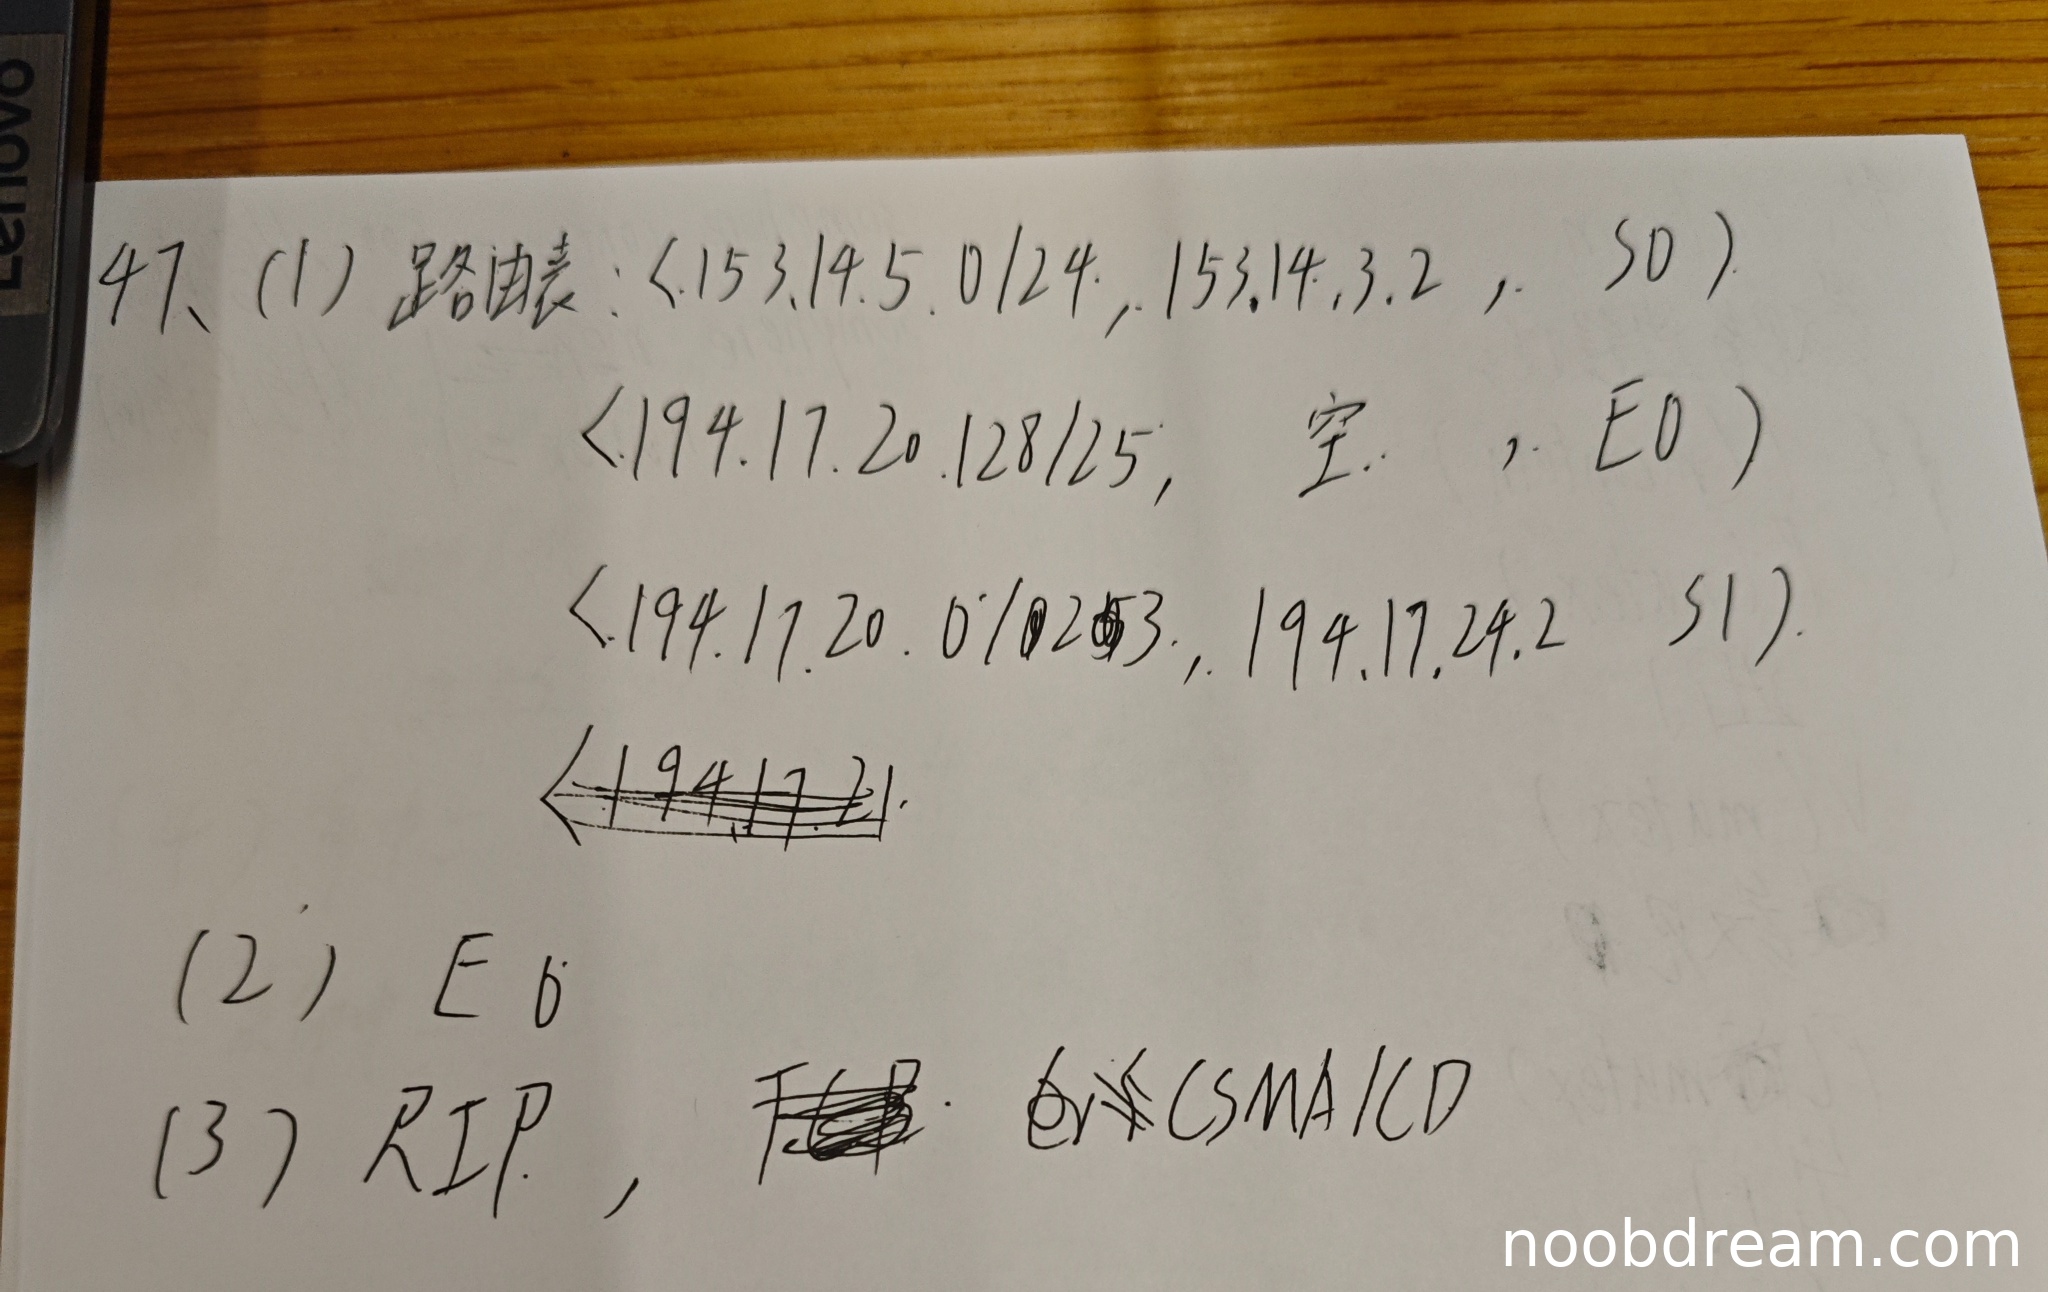 Lenovo
47、(1) 路由表: <153.14.5.0/24, 153.14.3.2, S0)
<194.17.20.128/25, 空, E0)
<194.17.20.0/23, 194.17.24.2 S1)
<194.17.21.
(2) E0
(3) RIP, CSMA/CD
noobdream.com